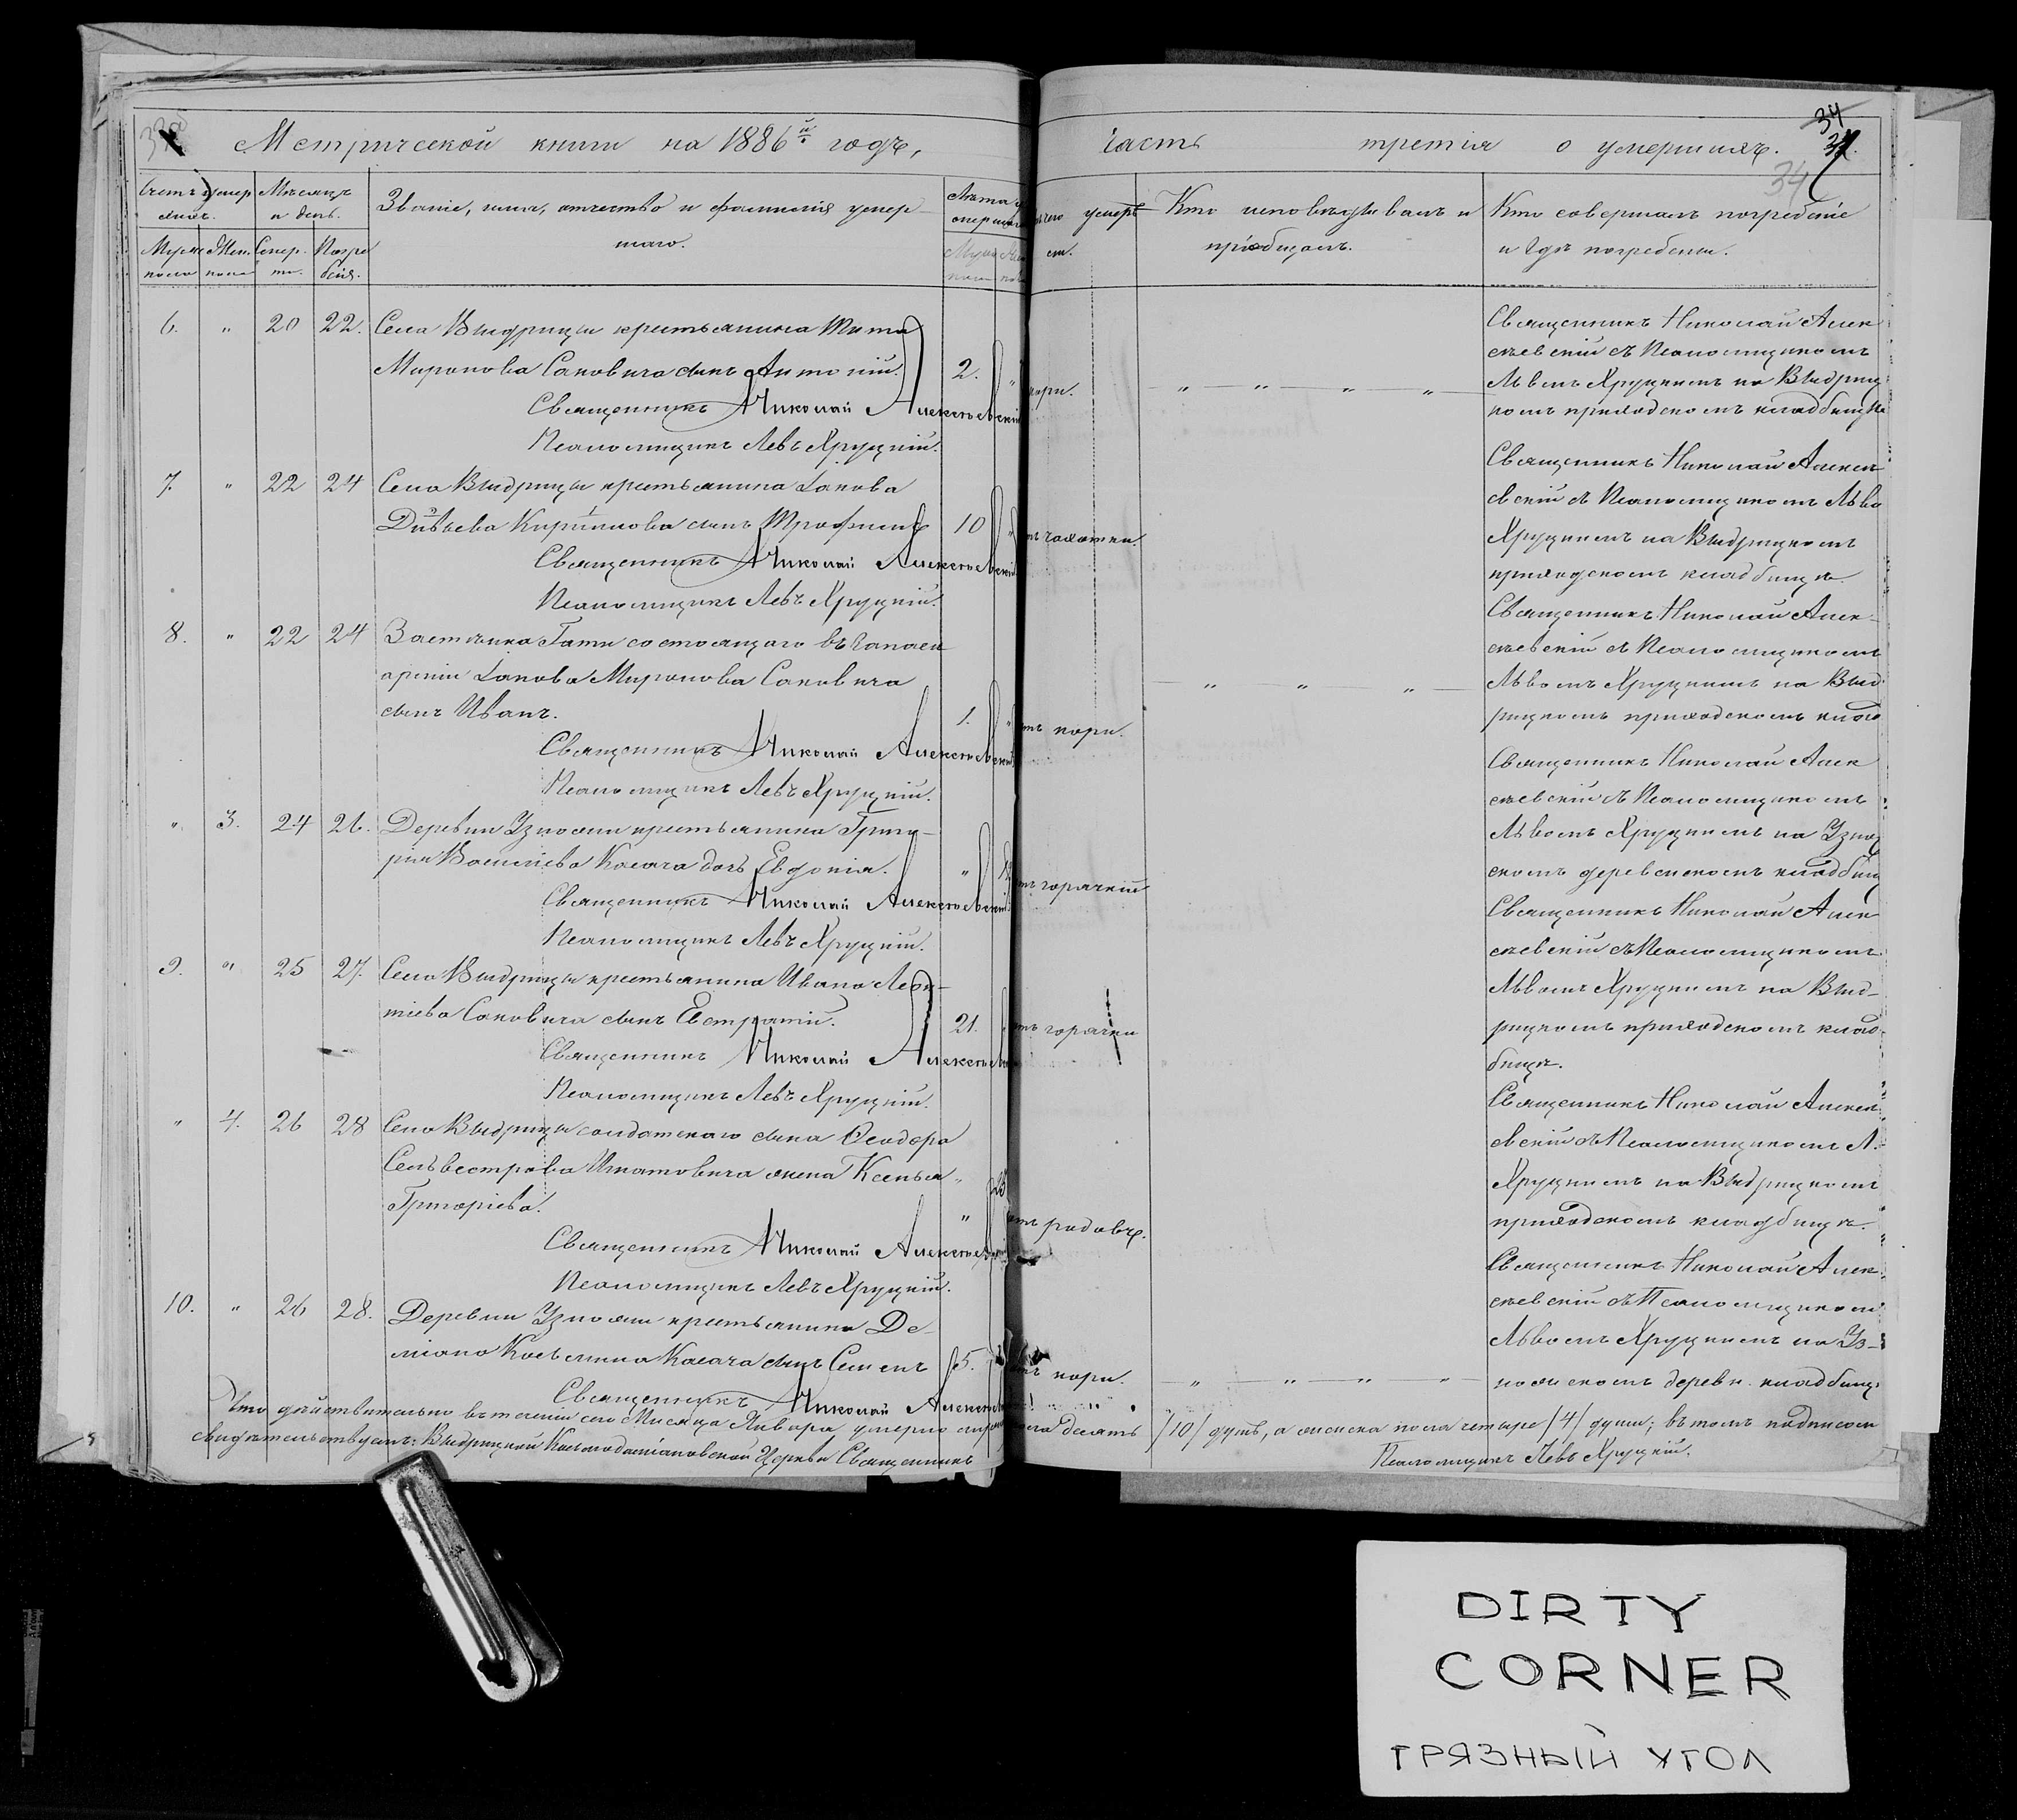 Метрической книги на 1886й годъ,
Часть третія о умершихъ.
34
34
Счетъ умер
шихъ.
Мѣсяцъ
и день.
Званіе, имя, отчество и фамилія умер
шаго.
Лѣта
умерш
Мужа
пола
Жен.
пола
Смер.
ти.
Погре
бенія.
чего умеръ
Кто исповѣдывалъ и
пріобщалъ.
Кто совершалъ погребеніе
и гдѣ погребены.
6. " 20 22. Села Выдрицы крестьянина Тита
Миронова Саковича сынъ Антоній. 2. " кори.
Священникъ Николай Алексѣевскій
Псаломщикъ Левъ Хруцкій.
Священникъ Николай Алек
сѣевскій съ Псаломщикомъ
Львомъ Хруцкимъ на Выдриц
комъ приходскомъ кладбищѣ
7. " 22 24 Села Выдрицы крестьянина Іакова
Кирилова сынъ Трофимъ 10 " чахотки.
Священникъ Николай Алексѣевскій
Псаломщикъ Левъ Хруцкій.
Священникъ Николай Алексѣ
евскій съ Псаломщикомъ Льво
Хруцкимъ на Выдрицкомъ
приходскомъ кладбищѣ.
8. " 22 24 Застѣнка Гати состоящаго въ
Іакова Миронова Саковича
сынъ Иванъ. 1. " отъ кори.
Священникъ Николай Алексѣевскій
Псаломщикъ Левъ Хруцкій.
Священникъ Николай Алек-
сѣевскій съ Псаломщикомъ
Львомъ Хруцкимъ на Выд
рицкомъ приходскомъ клад
" 3. 24 26. Деревни Узножи крестьянина Григо-
рія Васильева Касача дочь Евдокія. " отъ горячкіи
Священникъ Николай Алексѣевскій
Псаломщикъ Левъ Хруцкій.
Священникъ Николай Алек
сѣевскій съ Псаломщикомъ
Львомъ Хруцкимъ на Узнож
скомъ деревенскомъ кладбищ
9. " 25 27. Села Выдрицы крестьянина Ивана Леон-
тіева Саковича сынъ Евстратій. 21. отъ горячки
Священникъ Николай Алексѣев
Псаломщикъ Левъ Хруцкій.
Священникъ Николай Алек
сѣевскій съ Псаломщикомъ
Львомъ Хруцкимъ на Выд-
рицкомъ приходскомъ клад-
бищѣ.
" 4. 26 28 Села Выдрицы солдатскаго сына Ѳеодора
Сельвестрова Игнатовича жена Ксенья "
Григоріева. " отъ родовъ.
Священникъ Николай Алексѣев
Псаломщикъ Левъ Хруцкій.
Священникъ Николай Алексѣ
евскій съ Псаломщикомъ Л.
Хруцкимъ на Выдрицкомъ
приходскомъ кладбищѣ.
10. " 26 28. Деревни Узножи крестьянина Де-
міана Косьмина Касача сынъ Семенъ 5. отъ кори.
Священникъ Николай Алексѣев
Священникъ Николай Алек
сѣевскій съ Псаломщикомъ
Львомъ Хруцкимъ на Уз-
ножскомъ деревн. кладбищ.
Что дѣйствительно въ теченіи сего Мѣсяца Января умерло мужеска пола десять /10/ душъ, а женска пола четыре /4/ души; въ томъ подписом
свидѣтельствуемъ: Выдрицкой Космодаміановской Церкви Священникъ
Псаломщикъ Левъ Хруцкій.
DIRTY
CORNER
ГРЯЗНЫЙ УГОЛ